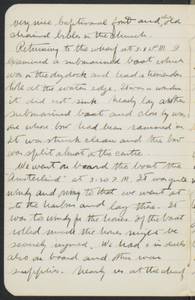 very nice baptismal font and old
chained bibles in the church.
Returning to the wharf at 3.15 P.M. I
examined a submarined boat which
was in the dry dock and had a tremendous
hole at the water edge. It was a wonder
it did not sink. Nearly lay another
submarined boat and close by was
one whose bow had been rammed in
it was struck clean and the bow
was split almost to the centre.
We went on board the boat the
Amsterdam at 3.30 P.M. It was quite
windy and owing to that we went out
to the harbor and lay there. It
was too windy for the horses if the boat
rolled much the horses might be
severely injured. We had a sick
also on board and there was
supplies. Nearly us at the wharf